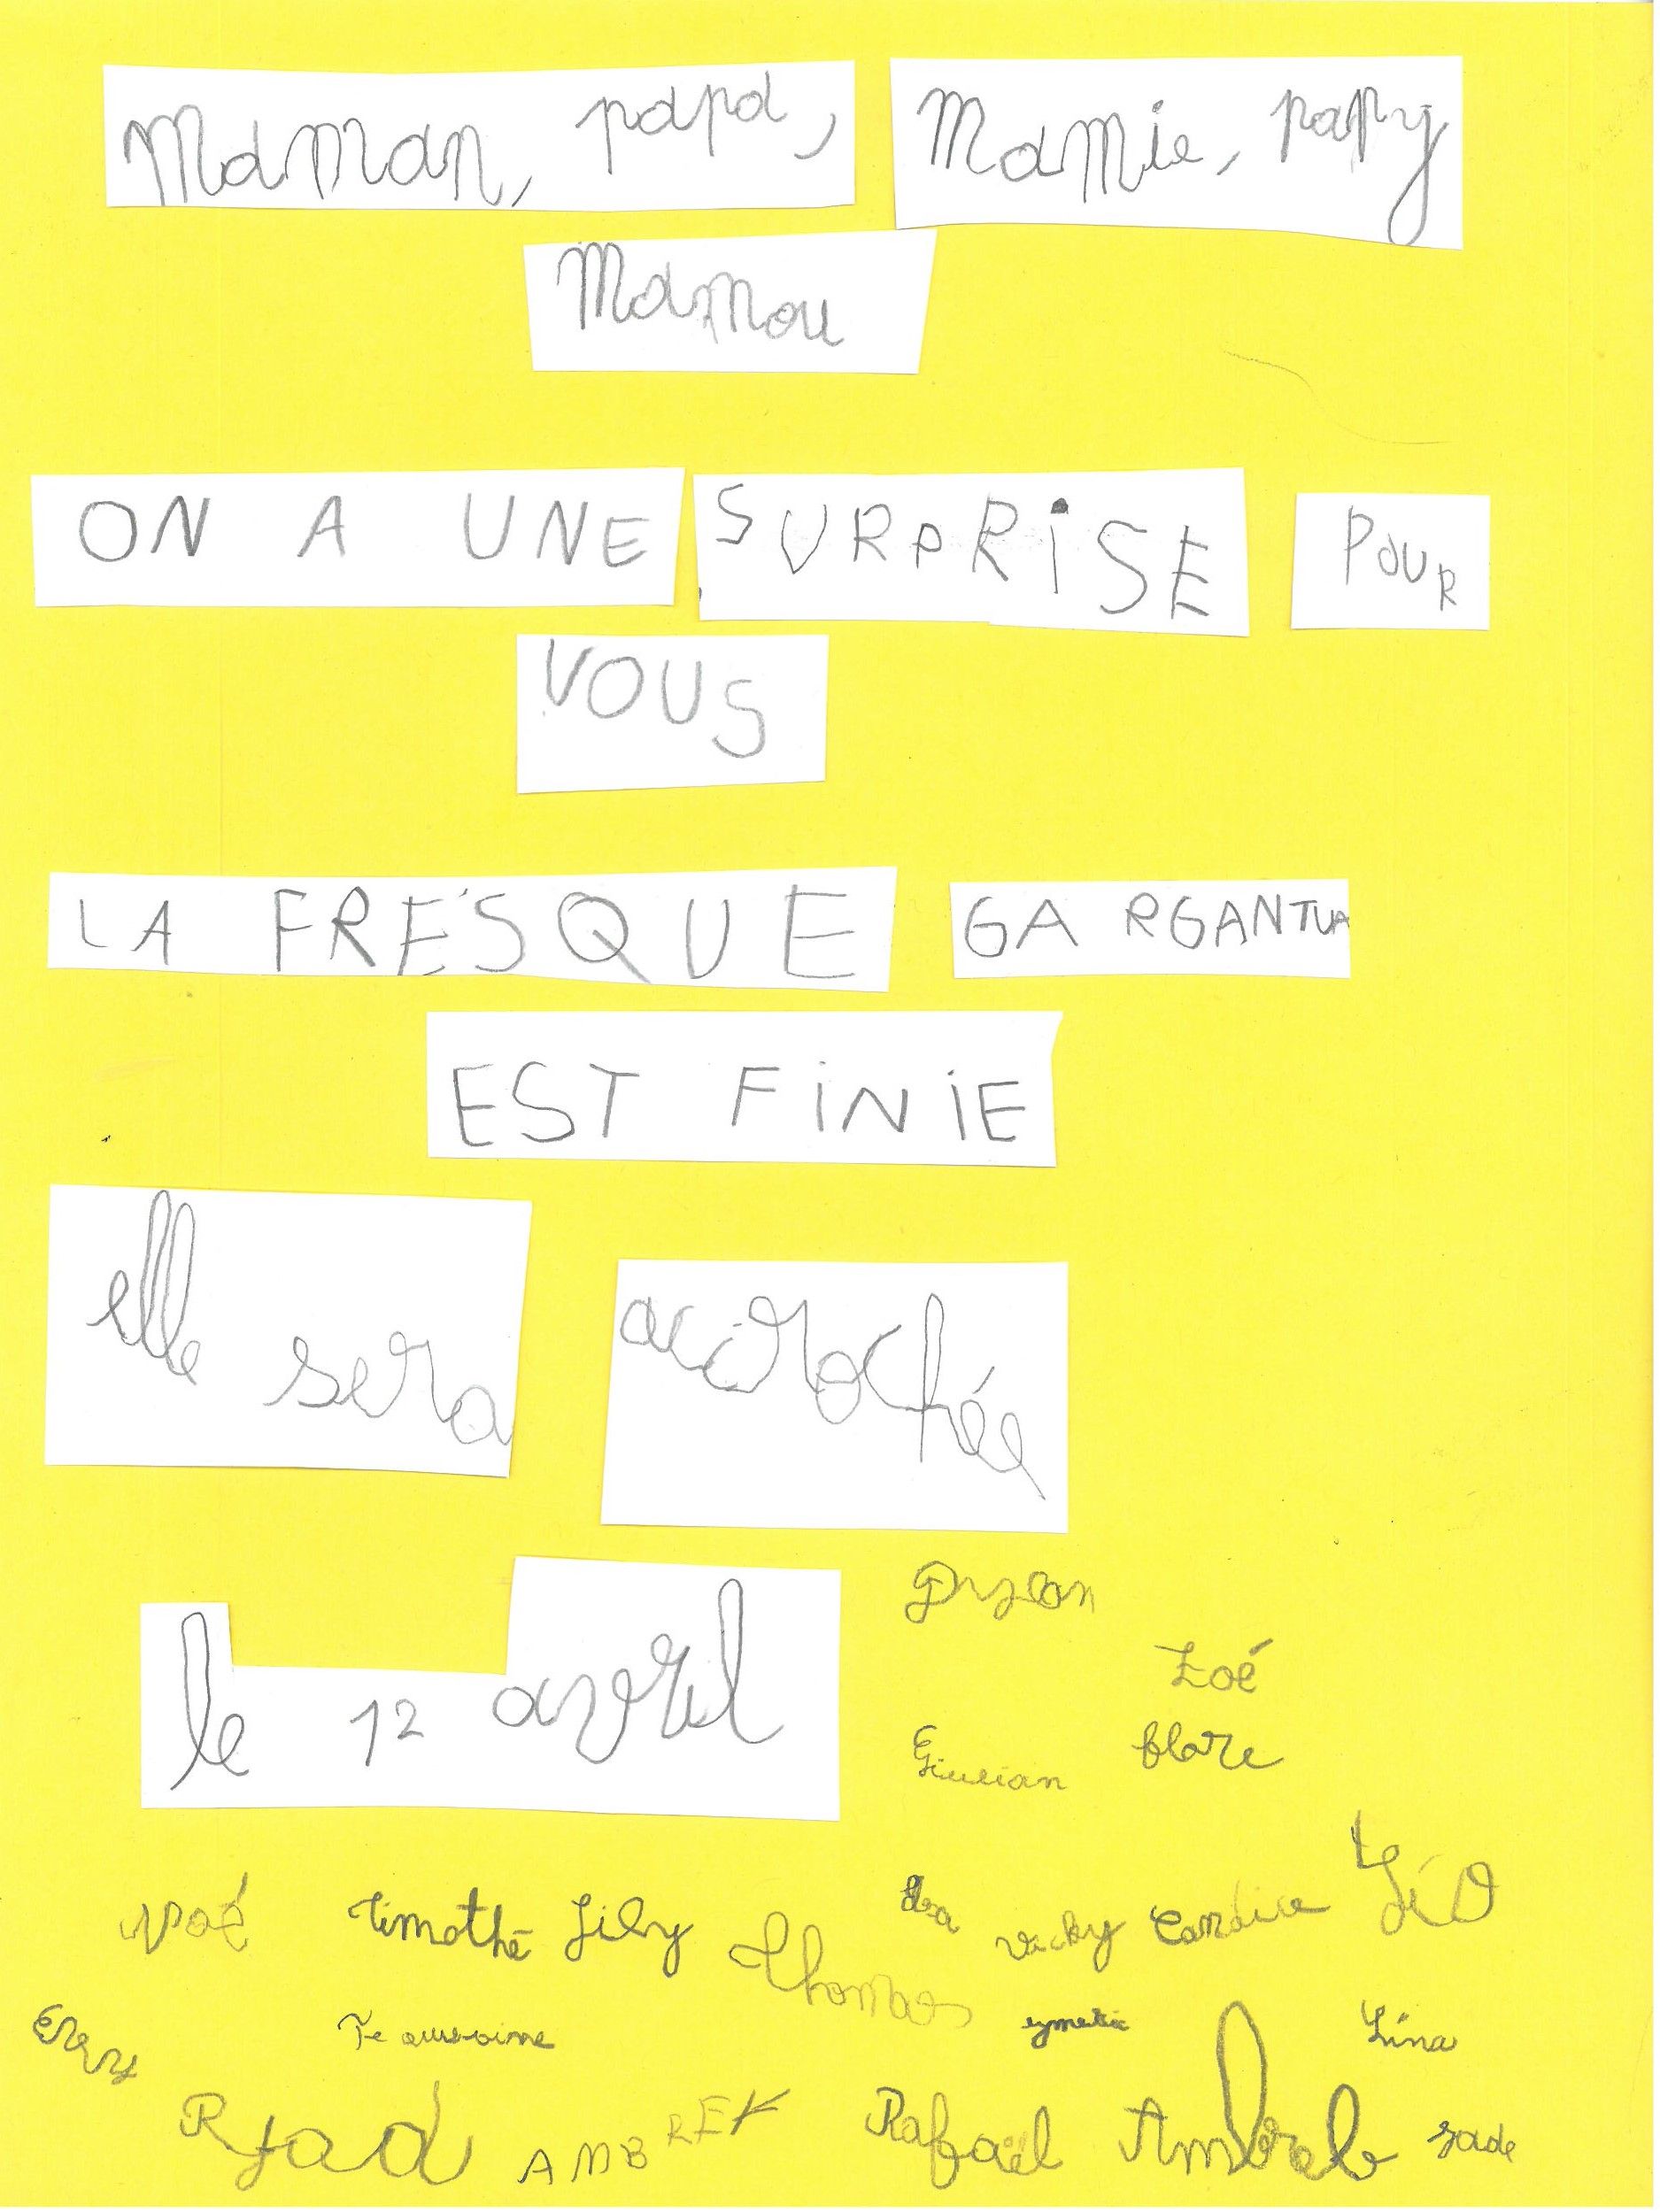 Maman, papa, Mamie, papy
Mamou
ON A UNE SURPRISE POUR
VOUS
LA FRESQUE GARGANTUA
EST FINIE
elle sera accrochée
le 12 avril
Zoé
Giulian
Noé Timothé Lily Thomas Vicky Candice Léo
Lina
Ryad AMBRE Rafaël Jade